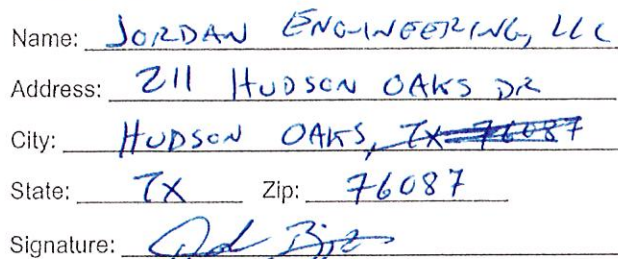 Name: JORDAN ENGINEERING, LLC
Address: 211 HUDSON OAKS DR
City: HUDSON OAKS, TX 76087
State: TX Zip: 76087
Signature: